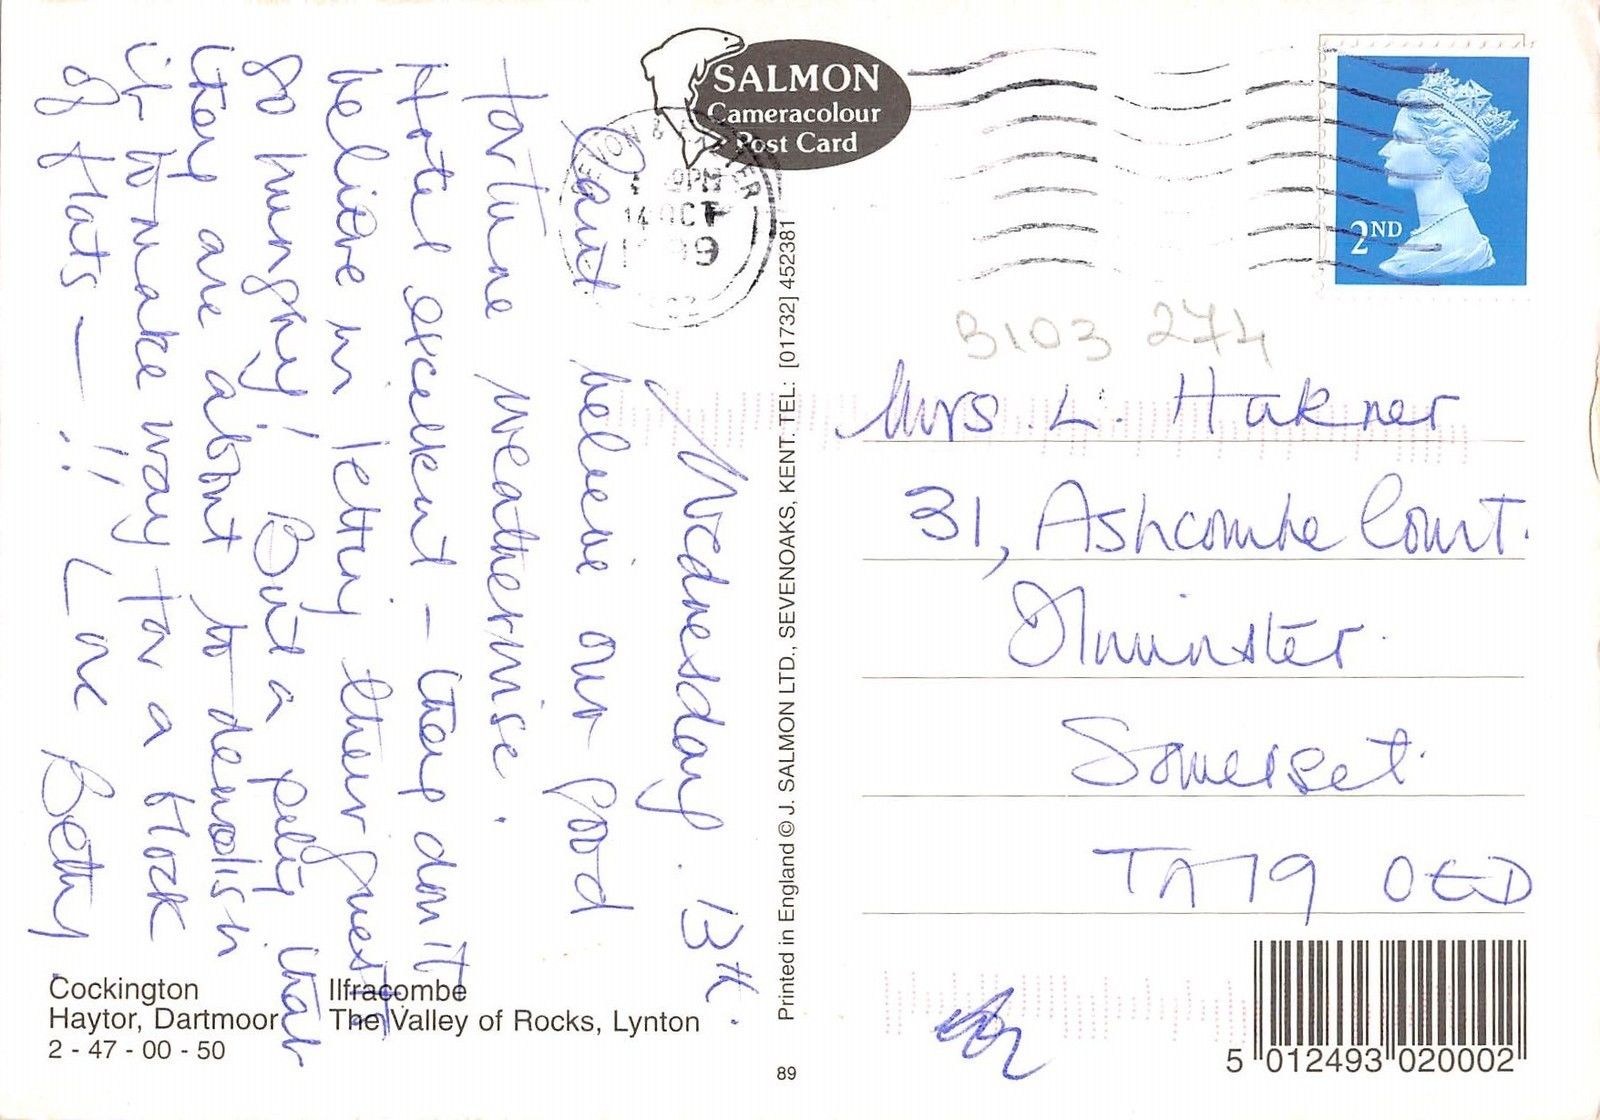 SALMON
Cameracolour
Post Card
DEVON & EXETER
14 OCT
2ND
B103 274
Wednesday. 13th.
Can't believe our good
fortune weatherwise.
Hotel excellent - they don't
believe in letting their guests
go hungry! But a pity that
they are about to demolish
it to make way for a block
of flats — !! Love Betty
Mrs. L. Hakner
31, Ashcombe Court.
Ilminster.
Somerset.
TA19 0ED
Printed in England © J. SALMON LTD., SEVENOAKS, KENT. TEL: [01732] 452381
Cockington
Haytor, Dartmoor
2 - 47 - 00 - 50
Ilfracombe
The Valley of Rocks, Lynton
89
5 012493 020002